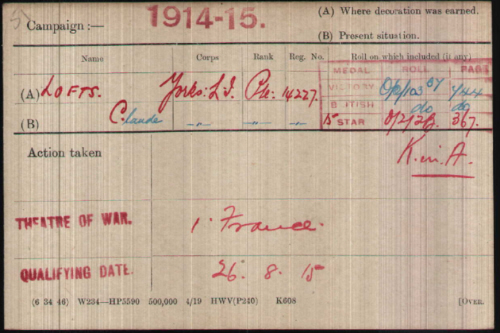 1914-15.
Campaign :—
(A) Where decoration was earned.
(B) Present situation.
Name Corps Rank Reg. No. Roll on which included (if any)
MEDAL ROLL PAGE
(A) LOFTS. Yorks: L.I. Pte: 14227.
VICTORY
(B) Claude -"- -"- -"-
BRITISH do do
15 STAR 367.
Action taken
K. in A.
THEATRE OF WAR. 1. France.
QUALIFYING DATE. 26. 8. 15
(6 34 46) W234—HP5590 500,000 4/19 HWV(P240) K608
[OVER.